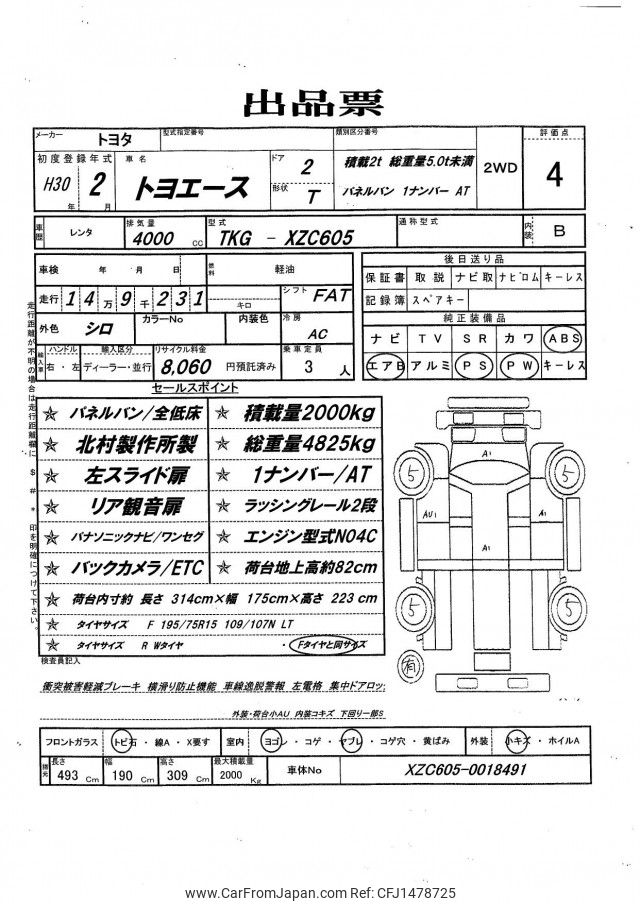 出品票
メーカー トヨタ 型式指定番号 類別区分番号 評価点
初度登録年式 車名 ドア 2 積載2t 総重量5.0t未満 2WD 4
H30 年 2 月 トヨエース 形状 T パネルバン 1ナンバー AT
車歴 レンタ 排気量 4000 cc 型式 TKG - XZC605 通称型式 内装 B
車検 年 月 日 燃料 軽油
走行 14万9千231 キロ シフト FAT
外色 シロ カラーNo 内装色 冷房 AC
輸入車 ハンドル 右・左 輸入区分 ディーラー・並行 リサイクル料金 8,060 円預託済み 乗車定員 3 人
後日送り品
保証書 取説 ナビ取 ナビロム キーレス
記録簿 スペアキー
純正装備品
ナビ TV SR カワ ABS
エアB アルミ PS PW キーレス
走行距離が不明の場合は走行距離欄に $ # * 印を明確につけて下さい。
セールスポイント
☆ パネルバン/全低床 ☆ 積載量2000kg
☆ 北村製作所製 ☆ 総重量4825kg
☆ 左スライド扉 ☆ 1ナンバー/AT
☆ リア観音扉 ☆ ラッシングレール2段
☆ パナソニックナビ/ワンセグ ☆ エンジン型式N04C
☆ バックカメラ/ETC ☆ 荷台地上高約82cm
☆ 荷台内寸約 長さ 314cm×幅 175cm×高さ 223 cm
☆ タイヤサイズ F 195/75R15 109/107N LT
☆ タイヤサイズ R Wタイヤ ・Fタイヤと同サイズ
A1
5 5
AU1 A1 A1
5 5
有
検査員記入
衝突被害軽減ブレーキ 横滑り防止機能 車線逸脱警報 左電格 集中ドアロッ;
外装・荷台小AU 内装コキズ 下回り一部S
フロントガラス トビ石・線A・X要す 室内 ヨゴレ・コゲ・ヤブレ・コゲ穴・黄ばみ 外装 小キズ・ホイルA
諸元 長さ 493 Cm 幅 190 Cm 高さ 309 Cm 最大積載量 2000 Kg 車体No XZC605-0018491
www.CarFromJapan.com Ref: CFJ1478725